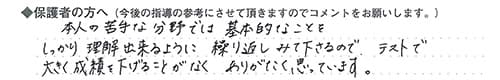 ◆保護者の方へ（今後の指導の参考にさせて頂きますのでコメントをお願いします。）
本人の苦手な分野では 基本的なことを
しっかり理解出来るように 繰り返しみて下さるので、テストで
大きく成績を下げることがなく ありがたく思っています。